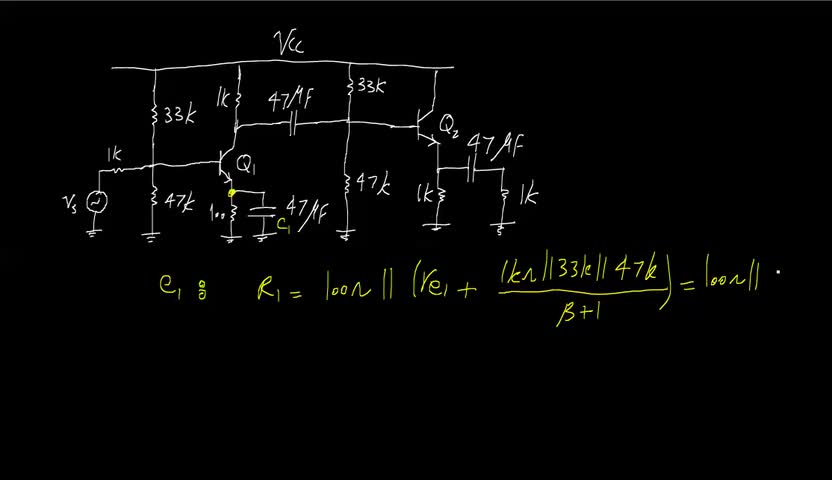 Vcc
33k
1k
47µF
33k
Q2
47µF
1k
Q1
Vs
47k
100
47µF
C1
47k
1k
1k
C1 : R1 = 100Ω || (re1 + 1kΩ||33k||47k / β+1) = 100Ω ||